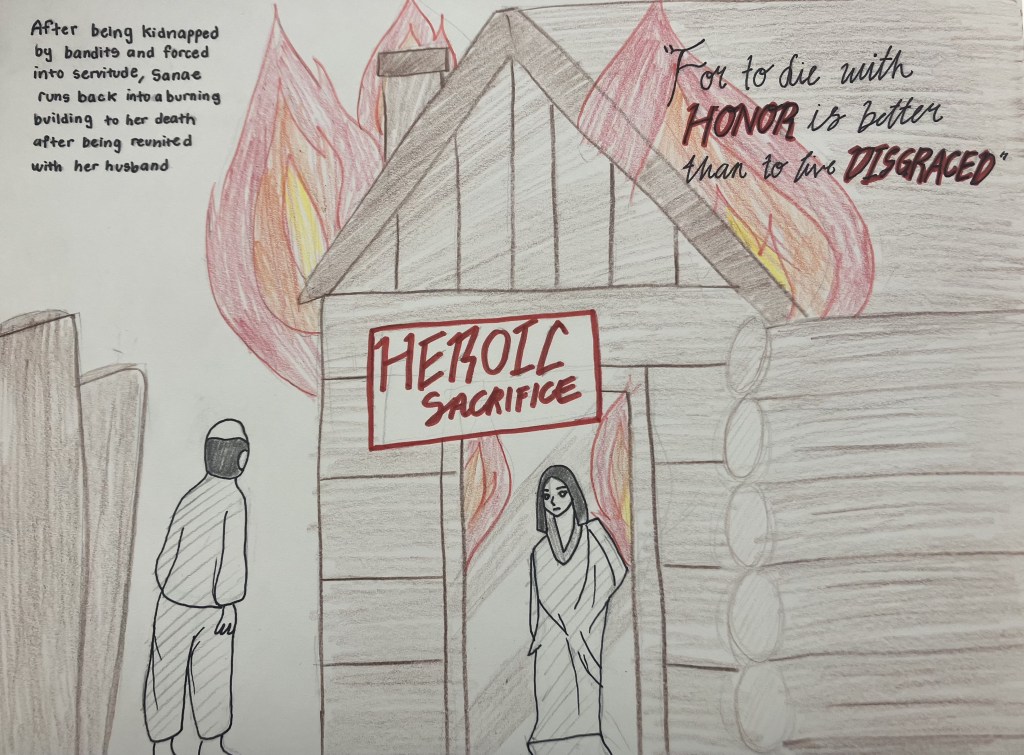 After being kidnapped
by bandits and forced
into servitude, Sanae
runs back into a burning
building to her death
after being reunited
with her husband
"For to die with
HONOR is better
than to live DISGRACED"
HEROIC
SACRIFICE